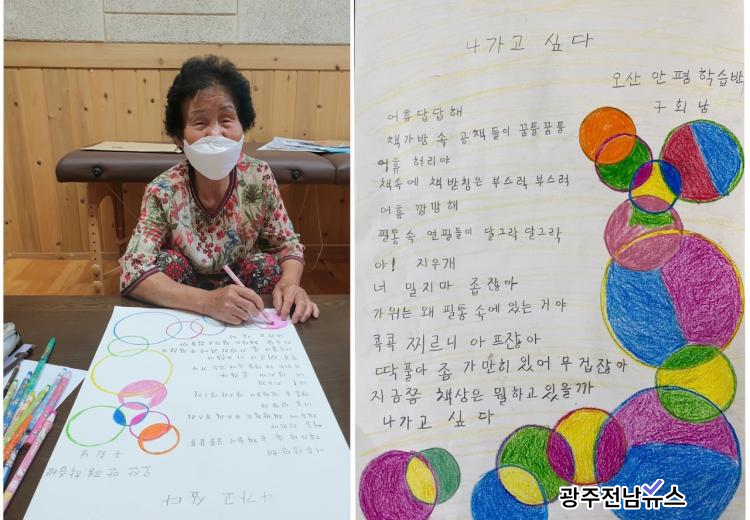 나가고 싶다
오산 안평학습반
구회남
어휴 답답해
책가방 속 공책들이 꿈틀꿈틀
어휴 허리야
책속에 책받침은 부스럭 부스러
어휴 깜깜해
필통속 연필들이 달그락 달그락
야! 지우개
너 밀지마 좁잖아
가위는 왜 필통 속에 있는 거야
콕콕 찌르니 아프잖아
딱풀아 좀 가만히 있어 무겁잖아
지금쯤 책상은 뭘하고 있을까
나가고 싶다
광주전남뉴스